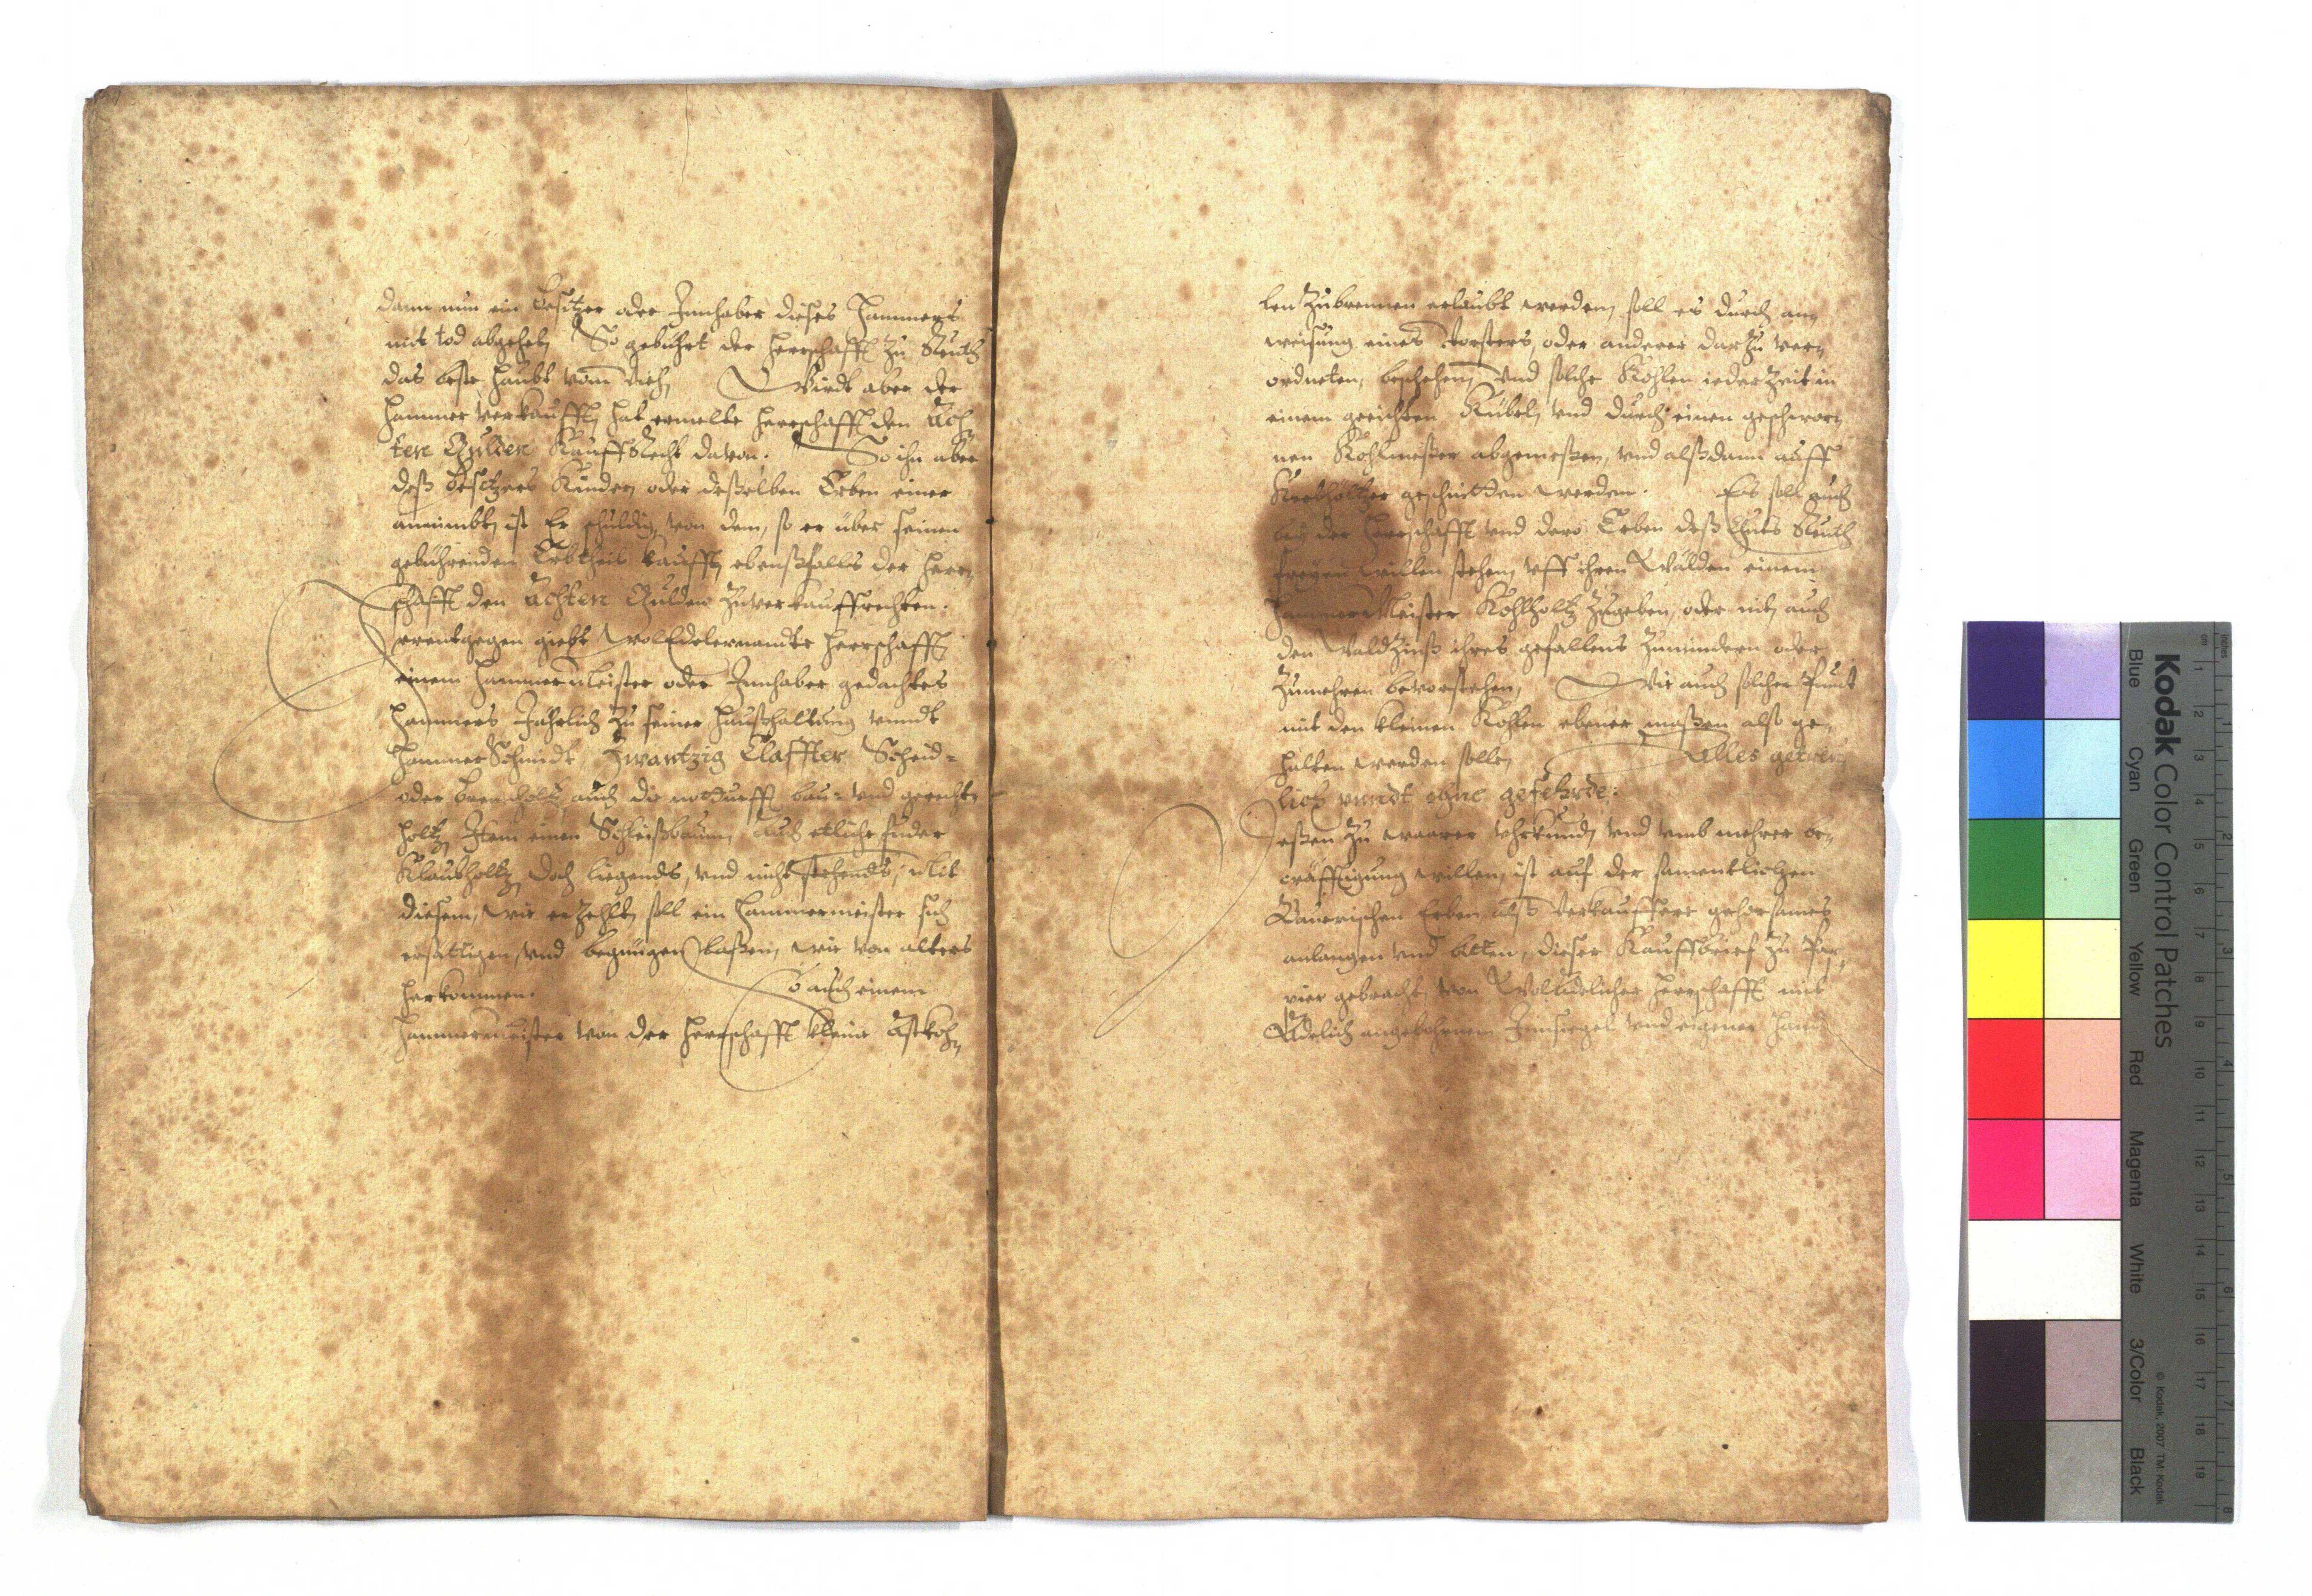 dann nun ein Besitzer oder Innhaber dieses Hammers
mit tod abgehet, So gebührt der Herrschafft zu Reuth
das beste Haubt vom Vieh, Wirdt aber der
Hammer verkaufft, hat ermelte Herrschafft den Ach,
ten Gulden KauffRecht davon. So ihn aber
deß Besitzers Kinder, oder deßelben Erben einer
annimbt, ist Er schuldig, von dem, so er über seinen
gebührenden Erbtheil kaufft, ebenßfalls der Herr,
schafft den Achten Gulden zuverkauffrechten.
erentgegen giebt WolEdelernandte Herrschafft
einem HammerMeister oder Innhaber gedachtes
Hammers Jährlich zu seiner Haußhaltung vnndt
HammerSchmidt Zwantzig Claffter Scheid-
oder Brennholtz, auch die notturfft bau- vnd gerecht,
holtz, Item einen Schleißbaum, Auch etliche fuder
Klaubholtz, doch liegends, vnd nicht stehends, Mit
diesem, wie erzehlt, soll ein Hammermeister sich
ersättigen, vnd begnügen laßen, wie von alters
Herkommen. So auch einem
Hammermeister von der Herrschafft kleine Astkoh,
len zubrennen erlaubt werden, soll es durch an,
weisung eines Forsters, oder anderer darzu ver,
ordneten, beschehen, vnd solche Kohlen iederzeit in
einem geeichten Kübel, vnd durch einen geschwor,
nen Kohlmeßer abgemeßen, vnd alßdann auff
Kerbhöltzer geschnitten werden. Es soll auch
bey der Herrschafft vnd dero Erben deß Guts Reuth
freyen willen stehen, vff ihren Wälden einem
HammerMeister Kohlholtz zugeben, oder nit, auch
den Waldzinß ihres gefallens zumindern oder
zumehren bevorstehen, Wie auch solcher Punct
mit den kleinen Kohlen ebener maßen also ge,
halten werden solle, Alles getreu,
lich vnndt ohne gefehrde.
eßen zu waarer vhrkund, vnd vmb mehrer be,
cräfftigung willen, ist auf der samentlichen
Bäuerischen Erben alß Verkauffere gehorsames
anlangen vnd bitten, dieser Kauffbrief zu Pap,
pier gebracht, von WolEdelicher Herrschafft mit
Adelich angebohrnem Innsiegel vnd eigener Hand